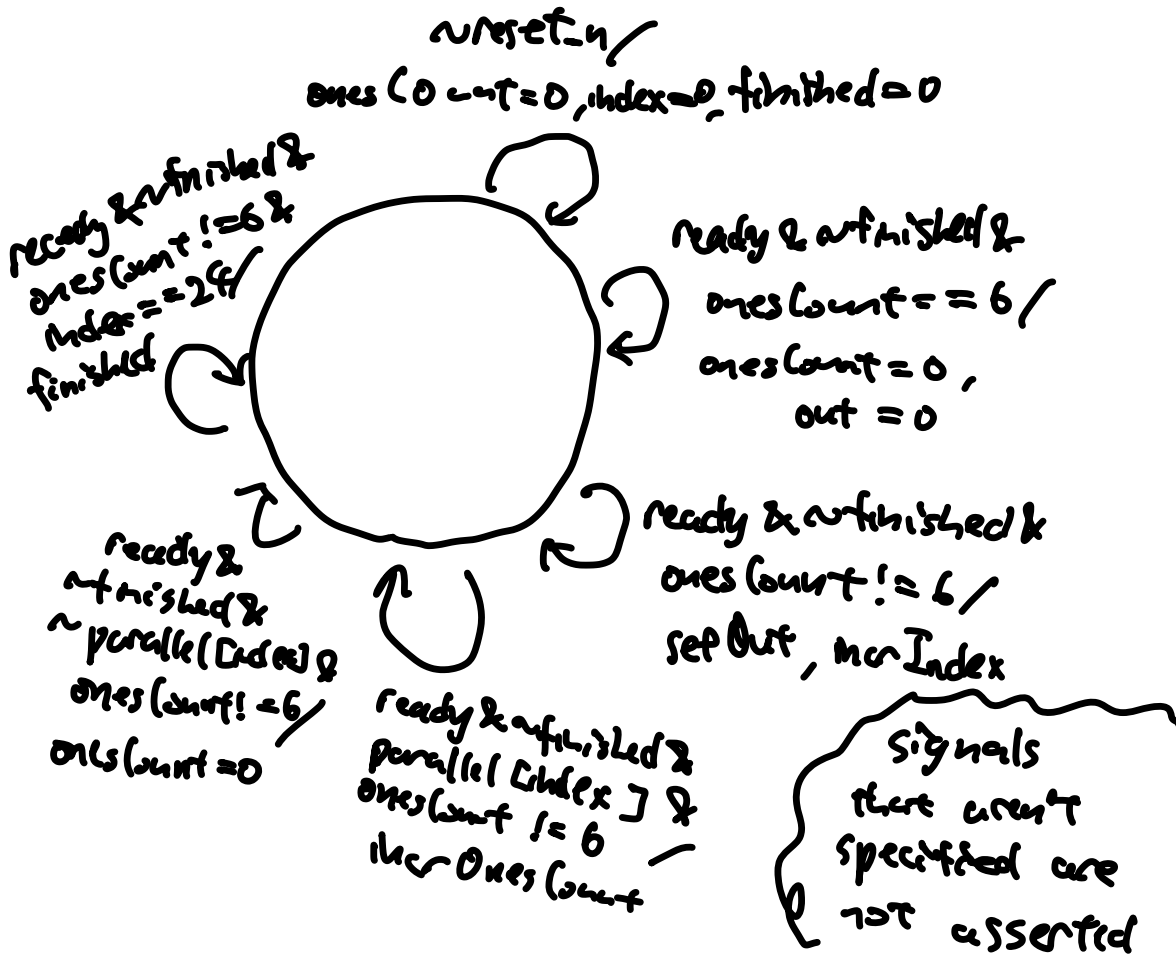 ~reset_n/
onesCount=0, index=0, finished=0
ready & ~finished &
onesCount != 6 &
index == 24/
finished
ready & ~finished &
onesCount == 6 /
onesCount = 0,
out = 0
ready & ~finished &
onesCount != 6 /
setOut, incrIndex
ready &
~finished &
~parallel[index] &
onesCount != 6 /
onesCount = 0
ready & ~finished &
parallel[index] &
onesCount != 6 /
incrOnesCount
signals
that aren't
specified are
not asserted